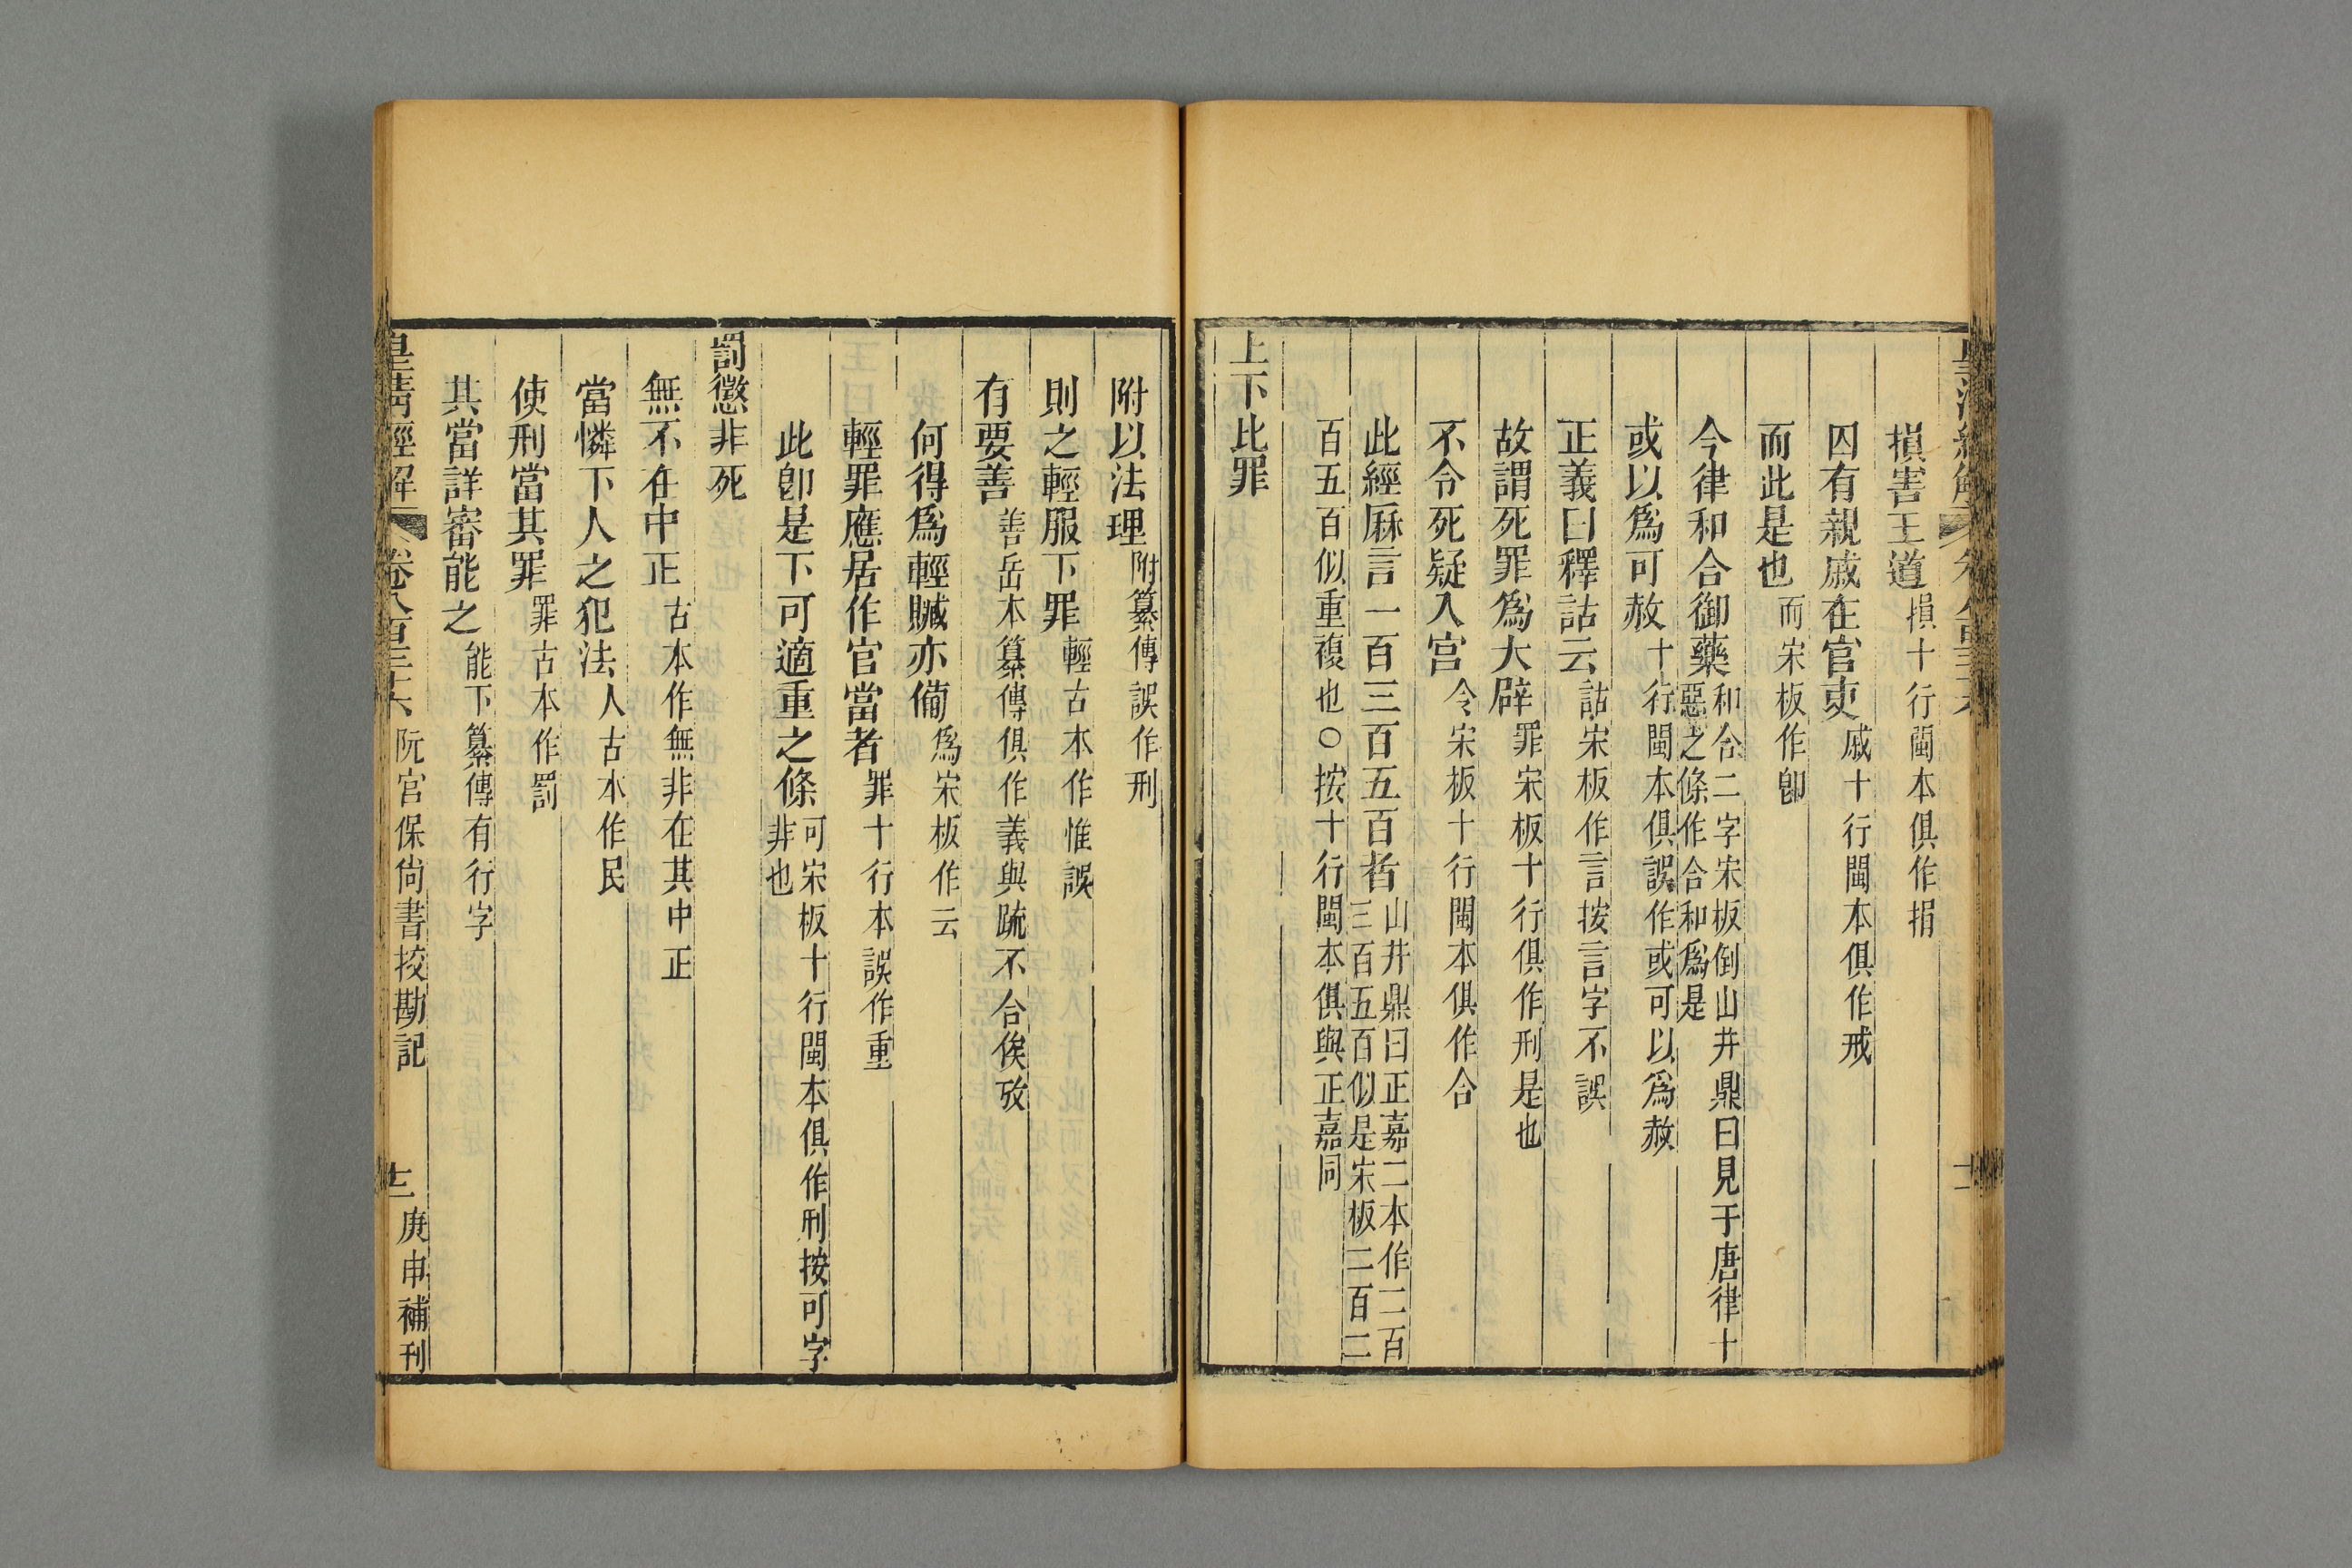 損害王道損十行閩本俱作捐
囚有親戚在官吏戚十行閩本俱作戒
而此是也而宋板作卽
今律和合御藥和合二字宋板倒山井鼎曰見于唐律十惡之條作合和爲是
或以爲可赦十行閩本俱誤作或可以爲赦
正義曰釋詁云詁宋板作言按言字不誤
故謂死罪爲大辟罪宋板十行俱作刑是也
不令死疑入宮令宋板十行閩本俱作合
此經厤言一百三百五百者山井鼎曰正嘉二本作二百三百五百似是宋板二百二
百五百似重複也○按十行閩本俱與正嘉同
上下比罪
附以法理附纂傳誤作刑
則之輕服下罪輕古本作惟誤
有要善善岳本纂傳俱作義與疏不合俟攷
何得爲輕贓亦備爲宋板作云
輕罪應居作官當者罪十行本誤作重
此卽是下可適重之條可宋板十行閩本俱作刑按可字非也
罰懲非死
無不在中正古本作無非在其中正
當憐下人之犯法人古本作民
使刑當其罪罪古本作罰
其當詳審能之能下纂傳有行字
皇清經解 卷八百三十六 阮宮保尙書挍勘記 十二 庚申補刊